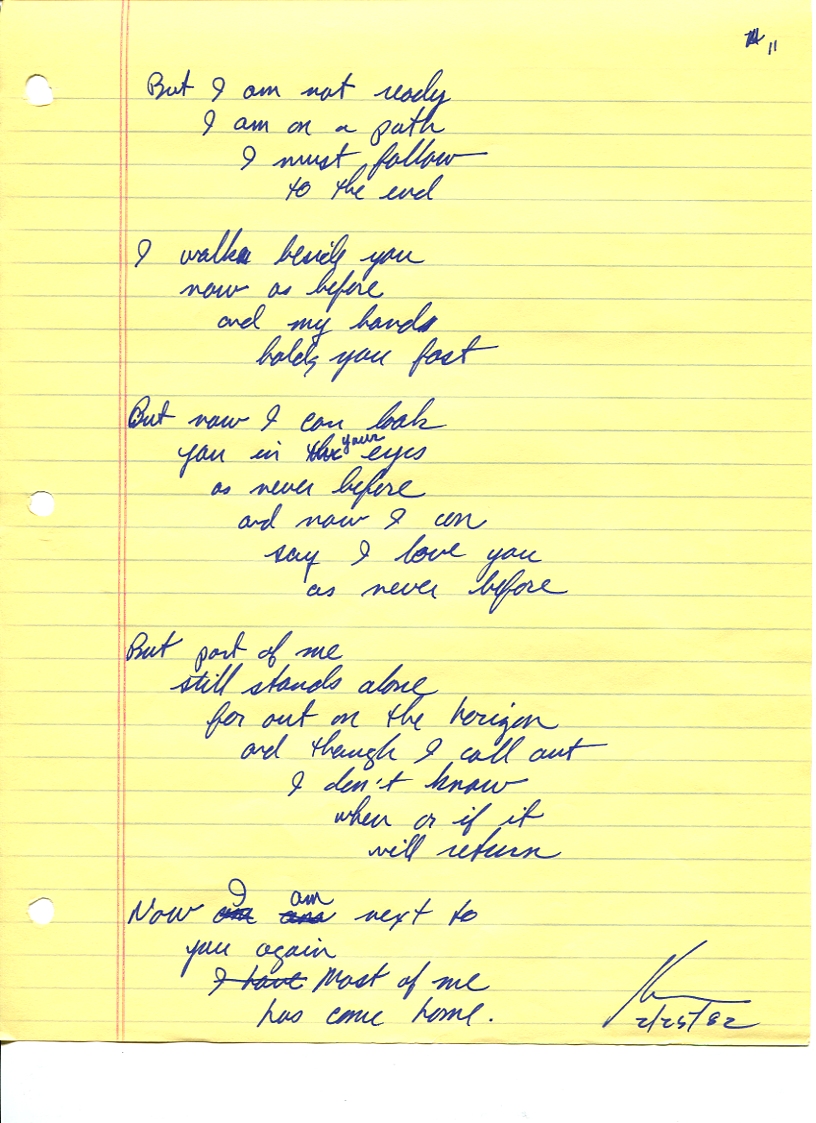 11
But I am not ready
I am on a path
I must follow
to the end
I walk beside you
now as before
and my hands
holds you fast
But now I can look
you in your eyes
as never before
and now I can
say I love you
as never before
But part of me
still stands alone
far out on the horizon
and though I call out
I don't know
when or if it
will return
Now I am next to
you again
I have Most of me
has come home.
2/25/82